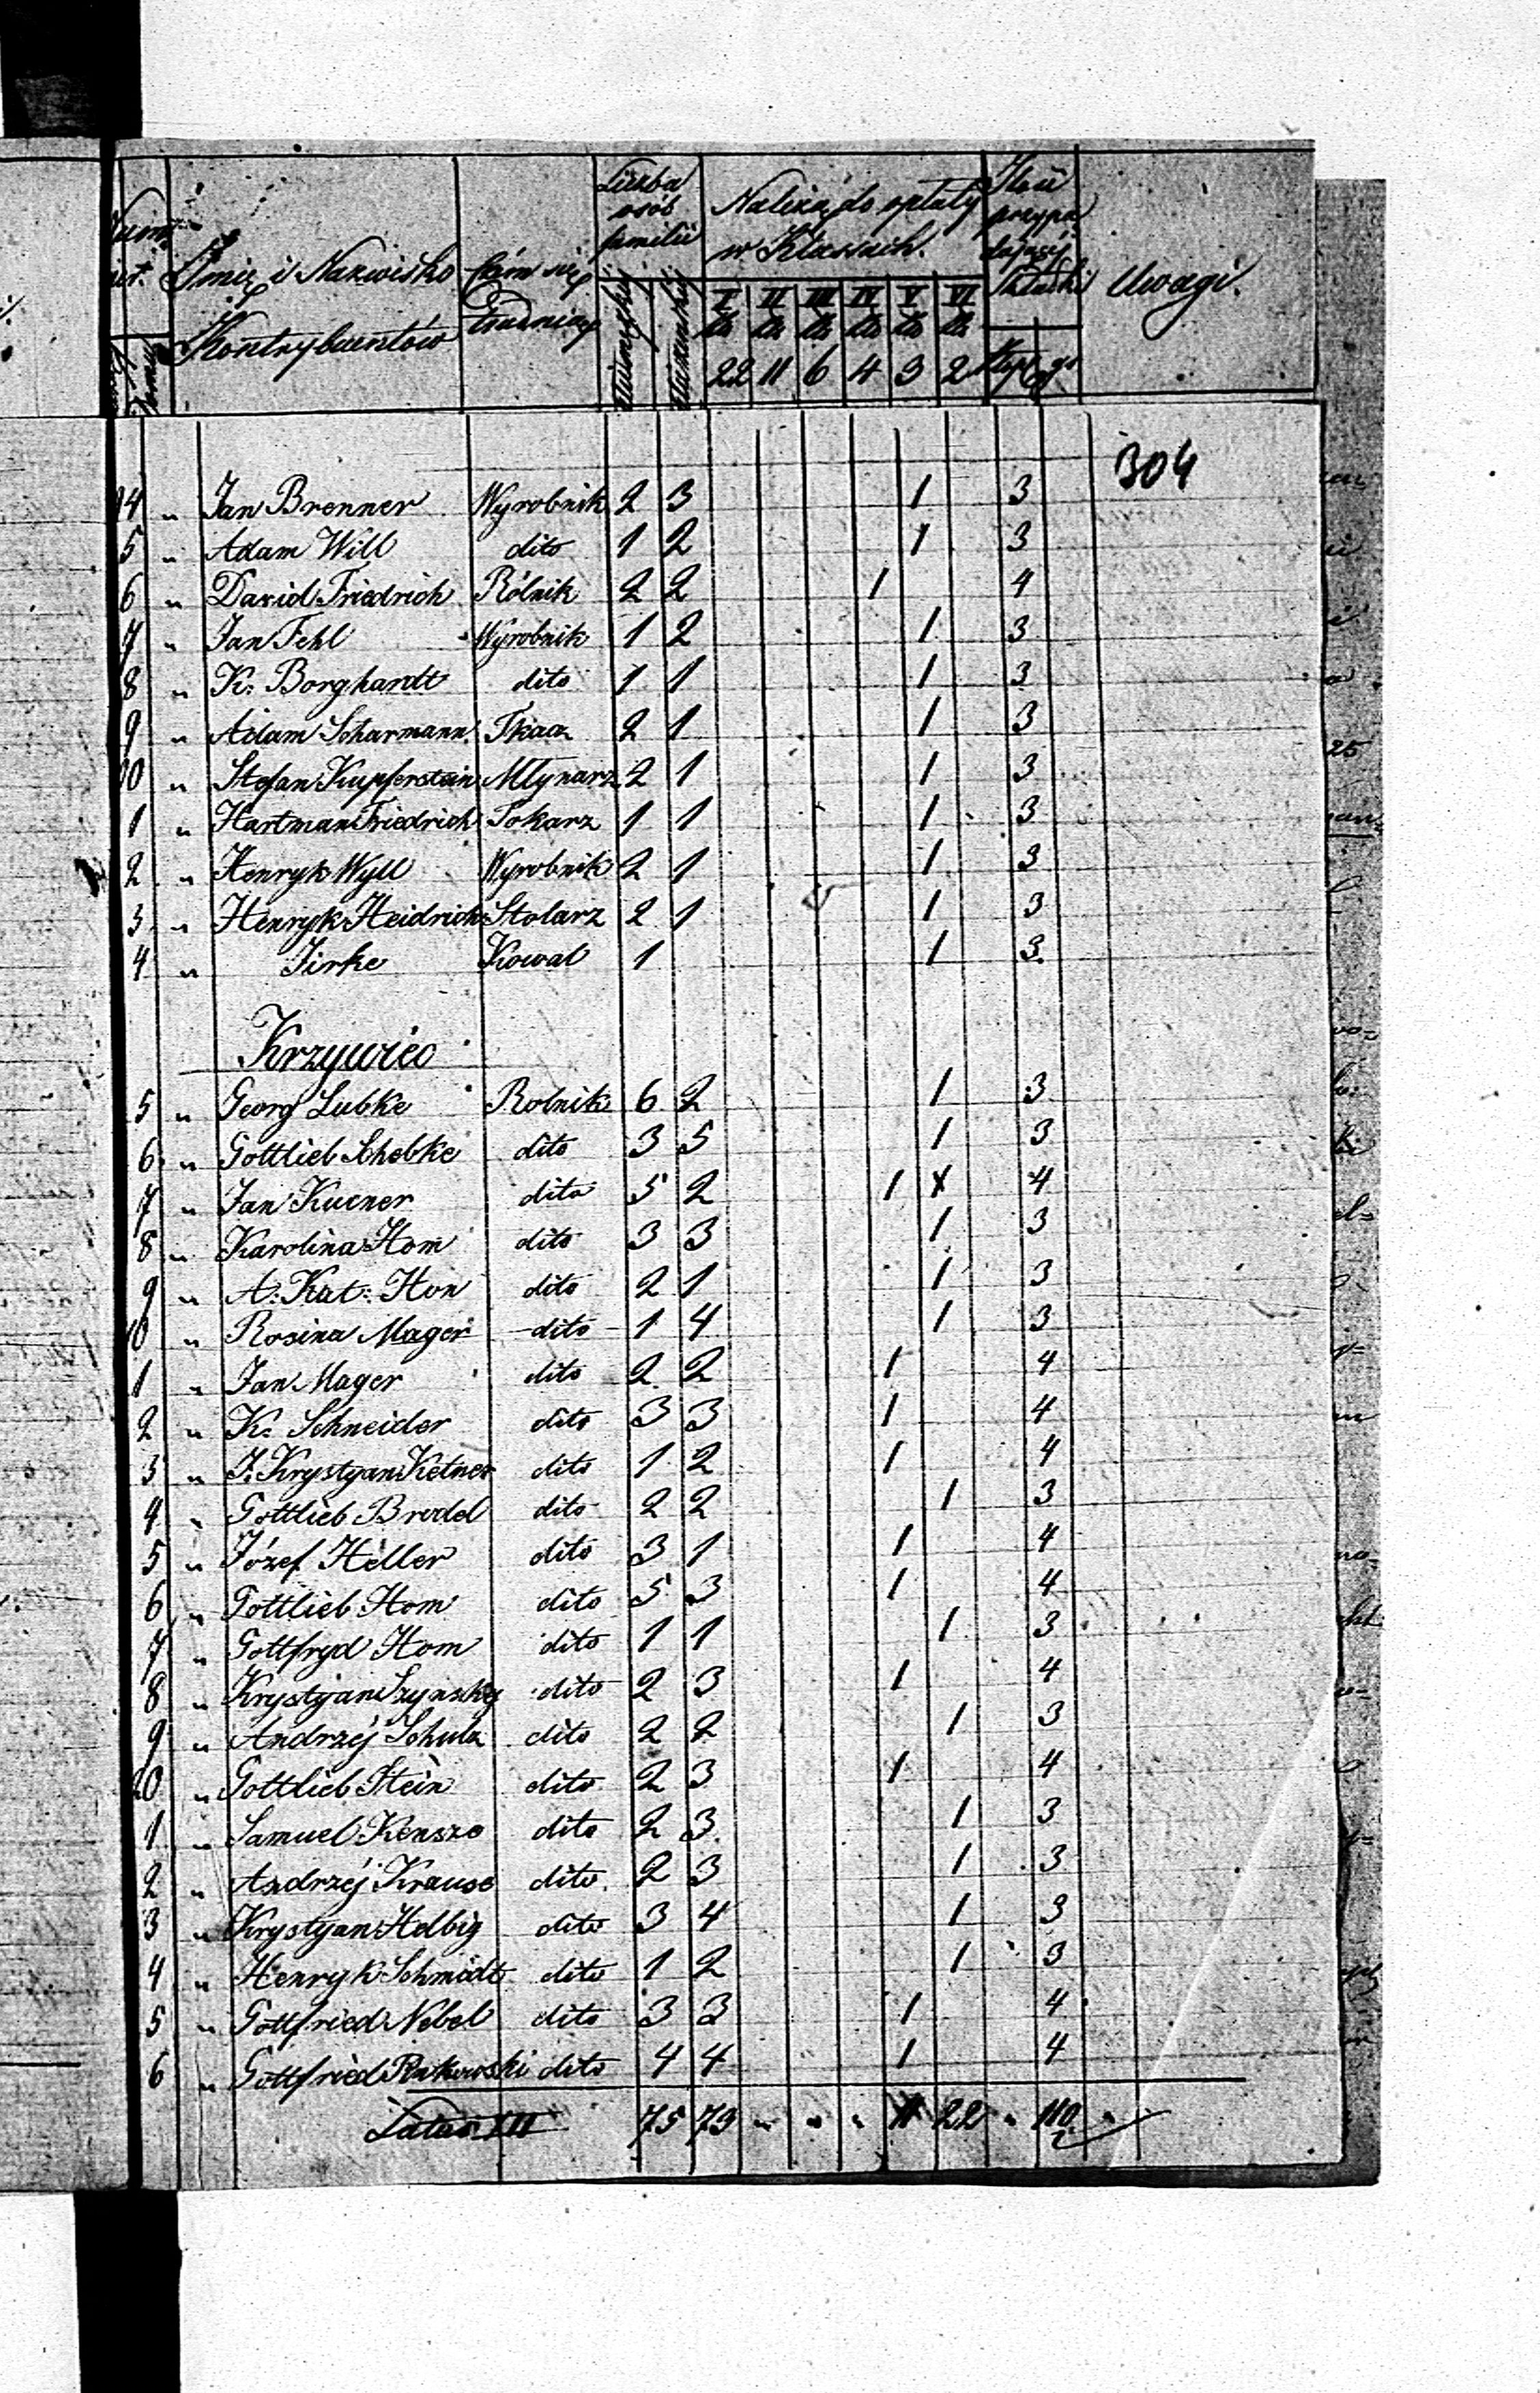 Liczba osób familii
Należą do opłaty w Klassach.
Imię i Nazwisko Kontrybuentów
Czém się trudnią
Uwagi.
I II III IV V VI
22 11 6 4 3 2
304
14 " Jan Brenner Wyrobnik 2 3 1 3
5 " Adam Will dito 1 2 1 3
6 " David Friedrich Rólnik 2 2 1 4
7 " Jan Fehl Wyrobnik 1 2 1 3
8 " K. Borghardt dito 1 1 1 3
9 " Adam Scharmann Tkacz 2 1 1 3
10 " Stefan Kupferstein Młynarz 2 1 1 3
1 " Hartman Friedrich Tokarz 1 1 1 3
2 " Henryk Wyll Wyrobnik 2 1 1 3
3 " Henryk Heidrich Stolarz 2 1 1 3
4 " Jirke Kowal 1 1 3
Krzywiec
5 " Georg Lubke Rolnik 6 2 1 3
6 " Gottlieb Schebke dito 3 5 1 3
7 " Jan Kucner dito 5 2 1 4
8 " Karolina Hom dito 3 3 1 3
9 " A. Kat: Hon dito 2 1 1 3
10 " Rosina Mager dito 1 4 1 3
1 " Jan Mager dito 2 2 1 4
2 " K. Schneider dito 3 3 1 4
3 " J. Krystyan Ketner dito 1 2 1 4
4 " Gottlieb Bredel dito 2 2 1 3
5 " Józef Heller dito 3 1 1 4
6 " Gottlieb Hom dito 5 3 1 4
7 " Gottfryd Hom dito 1 1 1 3
8 " Krystyan Szynsky dito 2 3 1 4
9 " Andrzéj Schulz dito 2 2 1 3
20 " Gottlieb Stein dito 2 3 1 4
1 " Samuel Kensze dito 2 3 1 3
2 " Andrzéj Krause dito 2 3 1 3
3 " Krystyan Helbig dito 3 4 1 3
4 " Henryk Schmidt dito 1 2 1 3
5 " Gottfried Nebel dito 3 3 1 4
6 " Gottfried Rakowski dito 4 4 1 4
Latus III 75 79 " " " 11 22 " 110 "